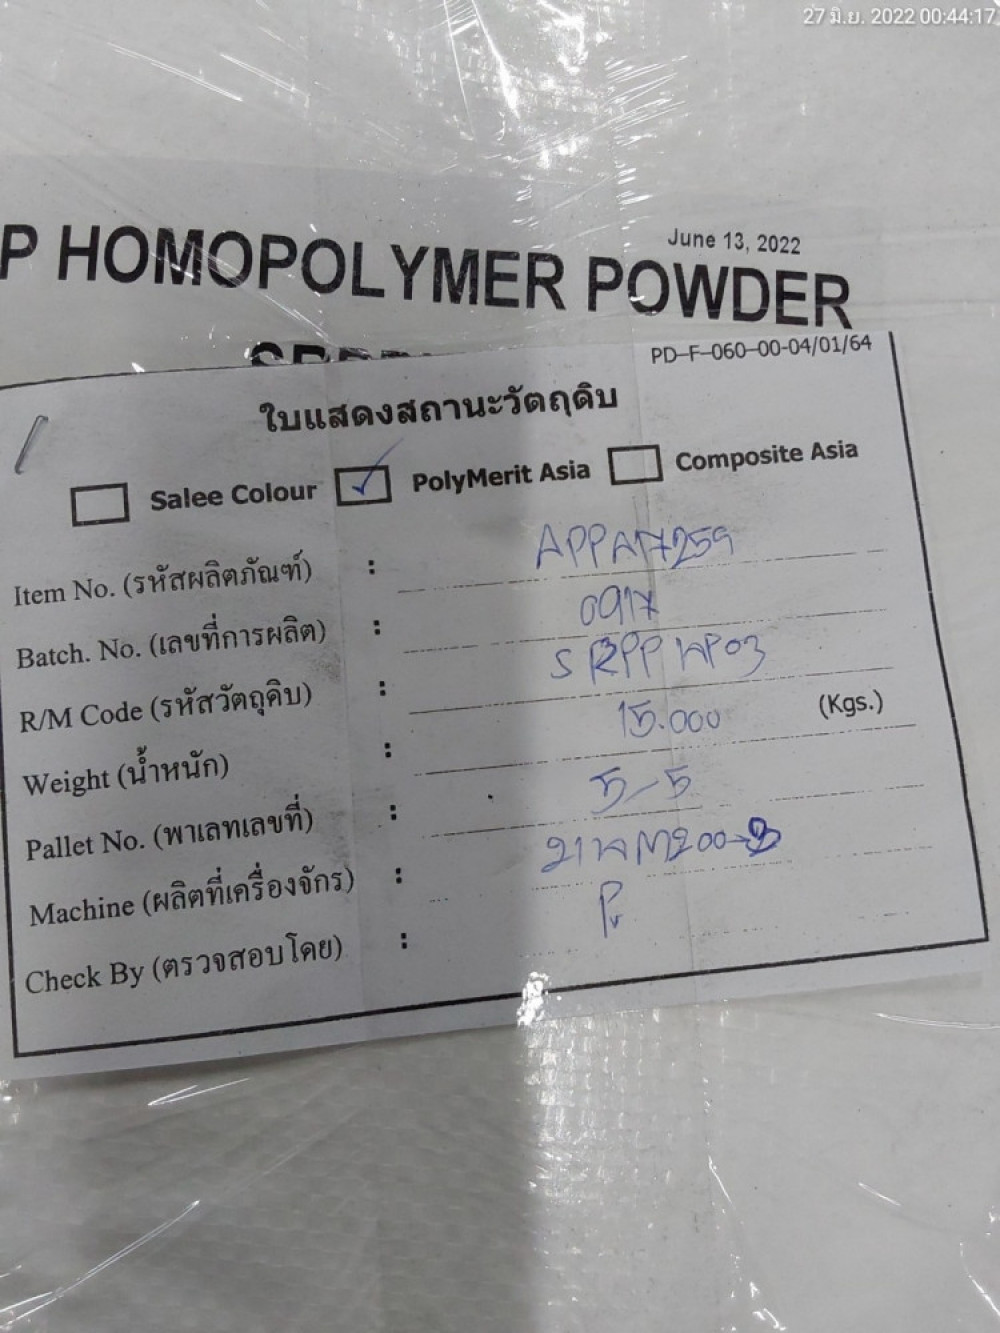 27 มิ.ย. 2022 00:44:17
June 13, 2022
P HOMOPOLYMER POWDER
PD-F-060-00-04/01/64
ใบแสดงสถานะวัตถุดิบ
Salee Colour PolyMerit Asia Composite Asia
Item No. (รหัสผลิตภัณฑ์) : APPA17259
Batch. No. (เลขที่การผลิต) : 0917
R/M Code (รหัสวัตถุดิบ) : SRPP
Weight (น้ำหนัก) : 15.000 (Kgs.)
Pallet No. (พาเลทเลขที่) : 5-5
Machine (ผลิตที่เครื่องจักร) :
Check By (ตรวจสอบโดย) :